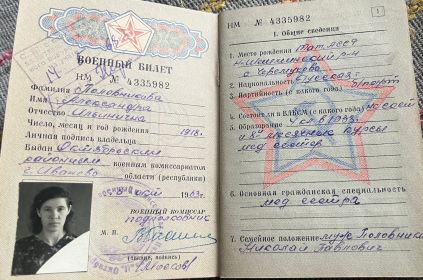 ВОЕННЫЙ БИЛЕТ
НМ № 4335982
Фамилия Половникова
Имя Александра
Отчество Ильинична
Число, месяц и год рождения 1918 г.
Личная подпись владельца
Выдан Октябрьским
районным военным комиссариатом
г. Иваново области (республики)
1963 г.
ВОЕННЫЙ КОМИССАР
подполковник
М. П.
(звание, подпись)
НМ № 4335982
1
I. Общие сведения
1. Место рождения Тат. АССР
2. Национальность русская
3. Партийность (с какого года) б/парт
4. Состоял ли в ВЛКСМ (с какого года)
5. Образование
курсы
мед сестер
6. Основная гражданская специальность
мед. сестра
7. Семейное положение муж Половников
Николай Павлович